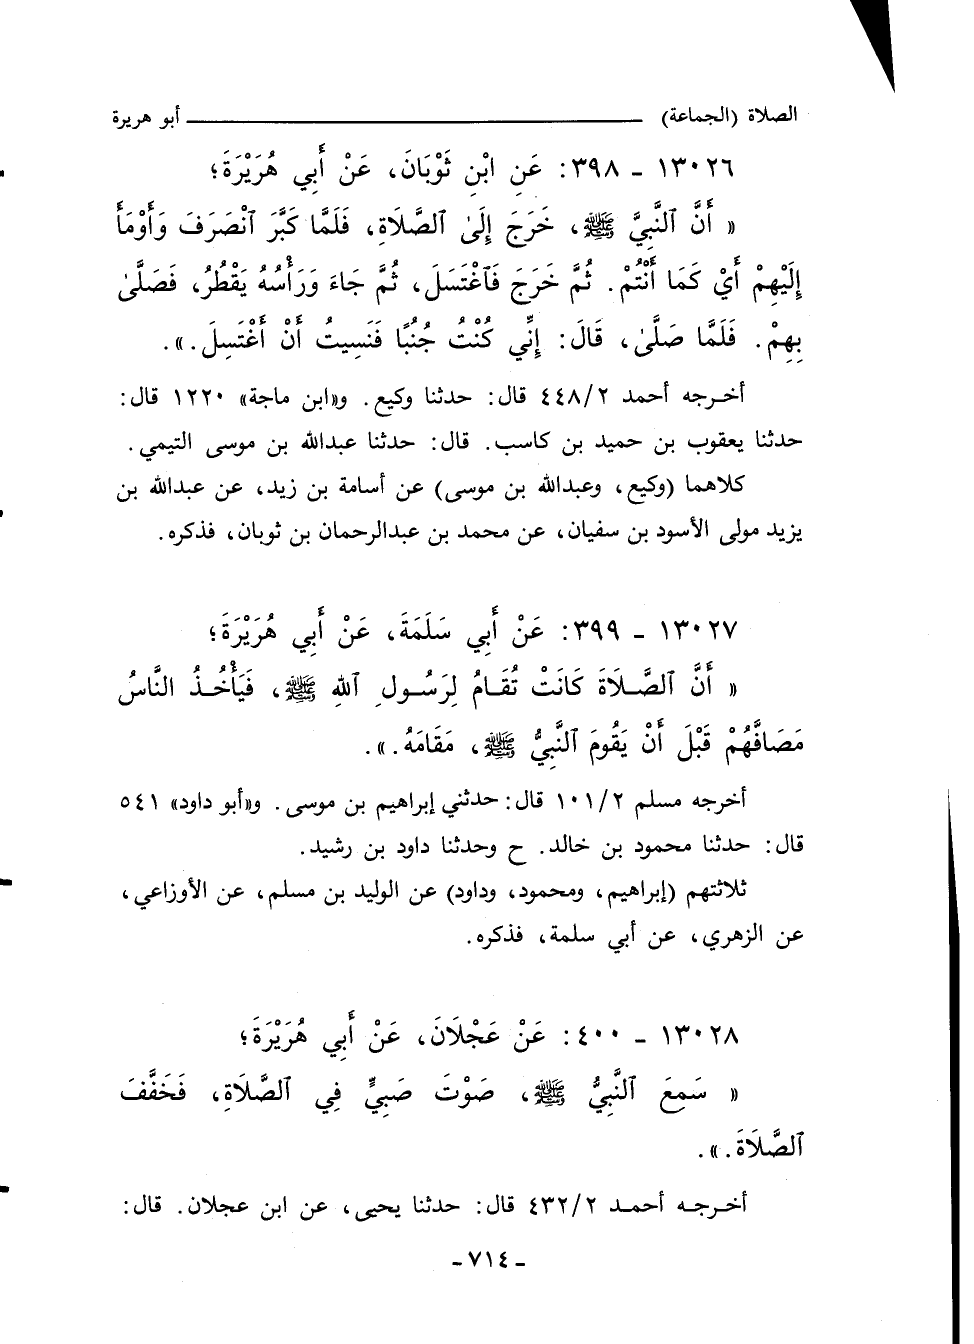 الصلاة (الجماعة) ـــــــــــــــــــــــــ أبو هريرة
١٣٠٢٦ ـ ٣٩٨: عَنِ ابْنِ ثَوْبَانَ، عَنْ أَبِي هُرَيْرَةَ؛
« أَنَّ ٱلنَّبِيَّ ﷺ، خَرَجَ إِلَىٰ ٱلصَّلَاةِ، فَلَمَّا كَبَّرَ ٱنْصَرَفَ وَأَوْمَأَ
إِلَيْهِمْ أَيْ كَمَا أَنْتُمْ. ثُمَّ خَرَجَ فَٱغْتَسَلَ، ثُمَّ جَاءَ وَرَأْسُهُ يَقْطُرُ، فَصَلَّىٰ
بِهِمْ. فَلَمَّا صَلَّىٰ، قَالَ: إِنِّي كُنْتُ جُنُبًا فَنَسِيتُ أَنْ أَغْتَسِلَ.».
أخرجه أحمد ٤٤٨/٢ قال: حدثنا وكيع. و«ابن ماجة» ١٢٢٠ قال:
حدثنا يعقوب بن حميد بن كاسب. قال: حدثنا عبدالله بن موسى التيمي.
كلاهما (وكيع، وعبدالله بن موسى) عن أسامة بن زيد، عن عبدالله بن
يزيد مولى الأسود بن سفيان، عن محمد بن عبدالرحمان بن ثوبان، فذكره.
١٣٠٢٧ ـ ٣٩٩: عَنْ أَبِي سَلَمَةَ، عَنْ أَبِي هُرَيْرَةَ؛
« أَنَّ ٱلصَّلَاةَ كَانَتْ تُقَامُ لِرَسُولِ ٱللهِ ﷺ، فَيَأْخُذُ النَّاسُ
مَصَافَّهُمْ قَبْلَ أَنْ يَقُومَ ٱلنَّبِيُّ ﷺ، مَقَامَهُ.».
أخرجه مسلم ١٠١/٢ قال: حدثني إبراهيم بن موسى. و«أبو داود» ٥٤١
قال: حدثنا محمود بن خالد. ح وحدثنا داود بن رشيد.
ثلاثتهم (إبراهيم، ومحمود، وداود) عن الوليد بن مسلم، عن الأوزاعي،
عن الزهري، عن أبي سلمة، فذكره.
١٣٠٢٨ ـ ٤٠٠: عَنْ عَجْلَانَ، عَنْ أَبِي هُرَيْرَةَ؛
« سَمِعَ ٱلنَّبِيُّ ﷺ، صَوْتَ صَبِيٍّ فِي ٱلصَّلَاةِ، فَخَفَّفَ
ٱلصَّلَاةَ.».
أخرجه أحمد ٤٣٢/٢ قال: حدثنا يحيى، عن ابن عجلان. قال:
ـ ٧١٤ ـ